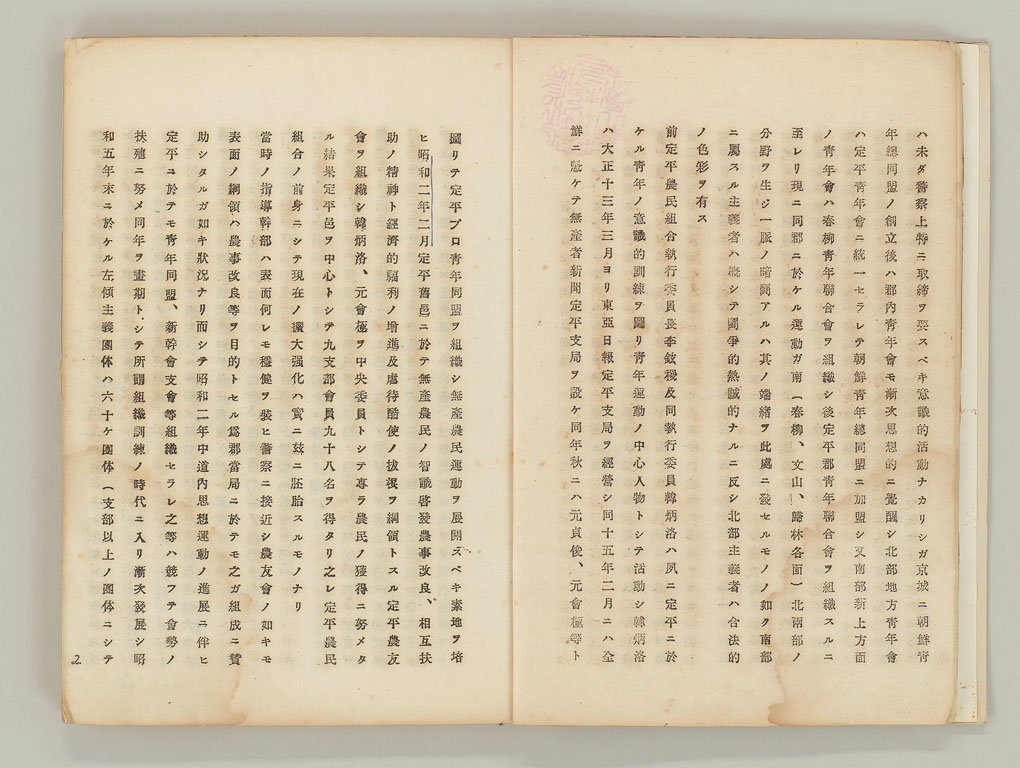 ハ未ダ警察上特ニ取締ヲ要スベキ意識的活動ナカリシガ京城ニ朝鮮靑
年總同盟ノ創立後ハ郡內靑年會モ漸次思想的ニ覺醒シ北部地方靑年會
ハ定平靑年會ニ統一セラレテ朝鮮靑年總同盟ニ加盟シ又南部新上方面
ノ靑年會ハ春柳靑年聯合會ヲ組織シ後定平郡靑年聯合會ヲ組織スルニ
至レリ現ニ同郡ニ於ケル運動ガ南(春柳、文山、歸林各面)北兩部ノ
分野ヲ生ジ一脈ノ暗鬪アルハ其ノ端緖ヲ此處ニ發セルモノノ如ク南部
ニ屬スル主義者ハ槪シテ鬪爭的熱誠的ナルニ反シ北部主義者ハ合法的
ノ色彩ヲ有ス
前定平農民組合執行委員長李鉉機及同執行委員韓炳洛ハ夙ニ定平ニ於
ケル靑年ノ意識的訓練ヲ圖リ靑年運動ノ中心人物トシテ活動シ韓炳洛
ハ大正十三年三月ヨリ東亞日報定平支局ヲ經營シ同十五年二月ニハ全
鮮ニ魁ケテ無產者新聞定平支局ヲ設ケ同年秋ニハ元貞俊、元會極等ト
圖リテ定平プロ靑年同盟ヲ組織シ無產農民運動ヲ展開スベキ素地ヲ培
ヒ昭和二年二月定平舊邑ニ於テ無產農民ノ智識啓發農事改良、相互扶
助ノ精神ト經濟的福利ノ增進及虐待酷使ノ拔役ヲ綱領トスル定平農友
會ヲ組織シ韓炳洛、元會極ヲ中央委員トシテ專ラ農民ノ獲得ニ努メタ
ル結果定平邑ヲ中心トシテ九支部會員九十八名ヲ得タリ之レ定平農民
組合ノ前身ニシテ現在ノ擴大强化ハ實ニ玆ニ胚胎スルモノナリ
當時ノ指導幹部ハ表面何レモ穩健ヲ裝ヒ警察ニ接近シ農友會ノ如キモ
表面ノ綱領ハ農事改良等ヲ目的トセル爲郡當局ニ於テモ之ガ組成ニ贊
助シタルガ如キ狀況ナリ而シテ昭和二年中道內思想運動ノ進展ニ伴ヒ
定平ニ於テモ靑年同盟、新幹會支會等組織セラレ之等ハ競フテ會勢ノ
扶殖ニ努メ同年ヲ畫期トシテ所謂組織訓練ノ時代ニ入リ漸次發展シ昭
和五年末ニ於ケル左傾主義團体ハ六十ケ團体(支部以上ノ團体ニシテ
2